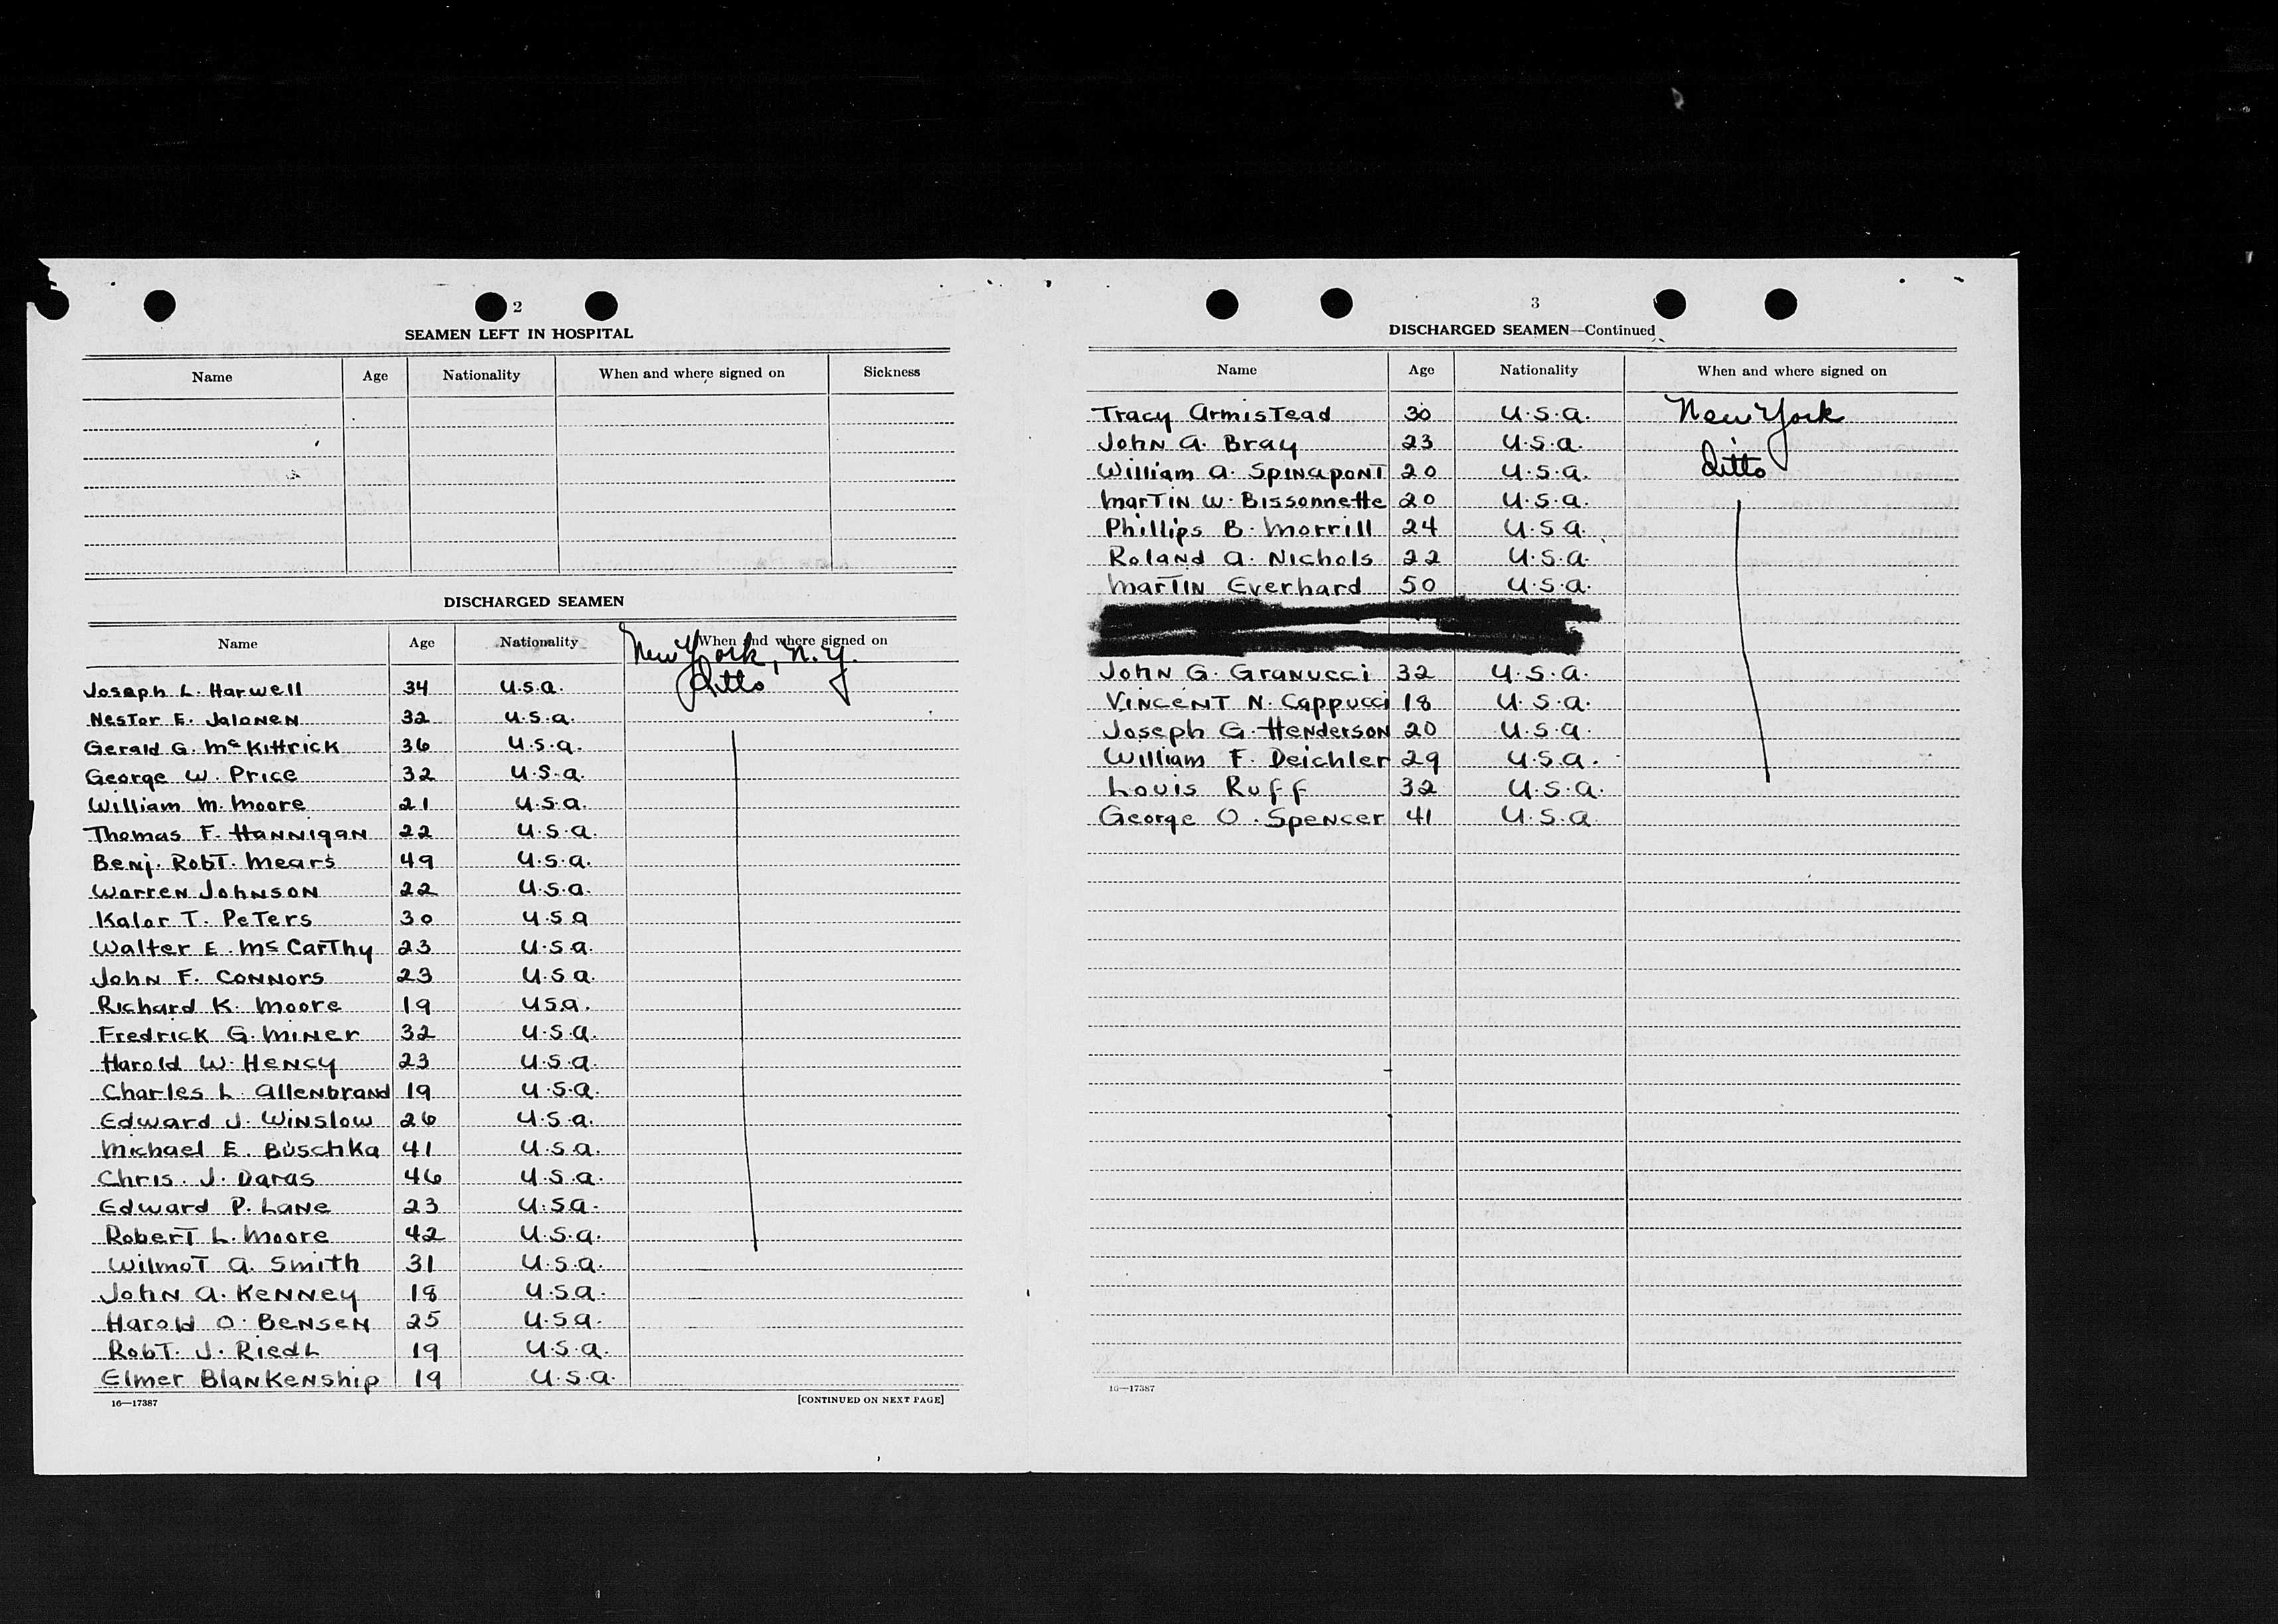 2
SEAMEN LEFT IN HOSPITAL
Name Age Nationality When and where signed on Sickness
DISCHARGED SEAMEN
Name Age Nationality When and where signed on
New York, N.Y.
Joseph L. Harwell 34 U.S.A. Ditto
Nestor E. Jalonen 32 U.S.A.
Gerald G. McKittrick 36 U.S.A.
George W. Price 32 U.S.A.
William M. Moore 21 U.S.A.
Thomas F. Hannigan 22 U.S.A.
Benj. Robt. Mears 49 U.S.A.
Warren Johnson 22 U.S.A.
Kalor T. Peters 30 U.S.A
Walter E. McCarthy 23 U.S.A.
John F. Connors 23 U.S.A.
Richard K. Moore 19 U.S.A.
Fredrick G. Miner 32 U.S.A.
Harold W. Hency 23 U.S.A.
Charles L. Allenbrand 19 U.S.A.
Edward J. Winslow 26 U.S.A.
Michael E. Buschka 41 U.S.A.
Chris. J. Daras 46 U.S.A.
Edward P. Lane 23 U.S.A.
Robert L. Moore 42 U.S.A.
Wilmot A. Smith 31 U.S.A.
John A. Kenney 18 U.S.A.
Harold O. Bensen 25 U.S.A.
Robt. J. Riedl 19 U.S.A.
Elmer Blankenship 19 U.S.A.
16—17387 [CONTINUED ON NEXT PAGE]
3
DISCHARGED SEAMEN—Continued
Name Age Nationality When and where signed on
Tracy Armistead 30 U.S.A. New York
John A. Bray 23 U.S.A.
William A. Spinapont 20 U.S.A. Ditto
Martin W. Bissonnette 20 U.S.A.
Phillips B. Morrill 24 U.S.A.
Roland A. Nichols 22 U.S.A.
Martin Everhard 50 U.S.A.
John G. Granucci 32 U.S.A.
Vincent N. Cappucci 18 U.S.A.
Joseph G. Henderson 20 U.S.A.
William F. Deichler 29 U.S.A.
Louis Ruff 32 U.S.A.
George O. Spencer 41 U.S.A
16—17387